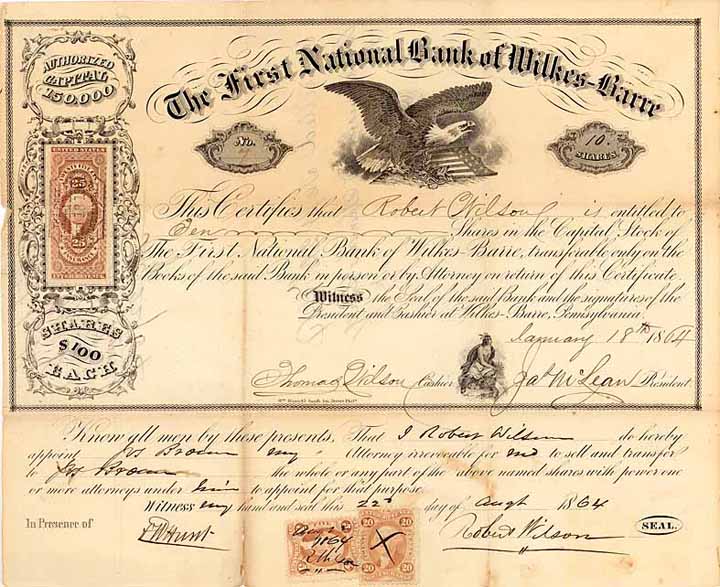 The First National Bank of Wilkes-Barre
AUTHORIZED
CAPITAL
150,000
No.
10.
SHARES
UNITED STATES
25
25
This Certifies that Robert Wilson is entitled to
Ten Shares in the Capital Stock of
The First National Bank of Wilkes-Barre, transferable only on the
Books of the said Bank in person or by Attorney on return of this Certificate.
Witness the Seal of the said Bank and the signatures of the
President and Cashier at Wilkes-Barre, Pennsylvania.
January 18th 1864
SHARES
$100
EACH
Thomas Wilson Cashier Jas McLean President
Know all men by these presents, That I Robert Wilson do hereby
appoint Jos Brown my Attorney irrevocable for me to sell and transfer
to Jos Brown the whole or any part of the above named shares with power one
or more attorneys under him to appoint for that purpose.
Witness my hand and seal this 22d day of Augt 1864
In Presence of
Robert Wilson
SEAL.
1864
20 20
X
20 20